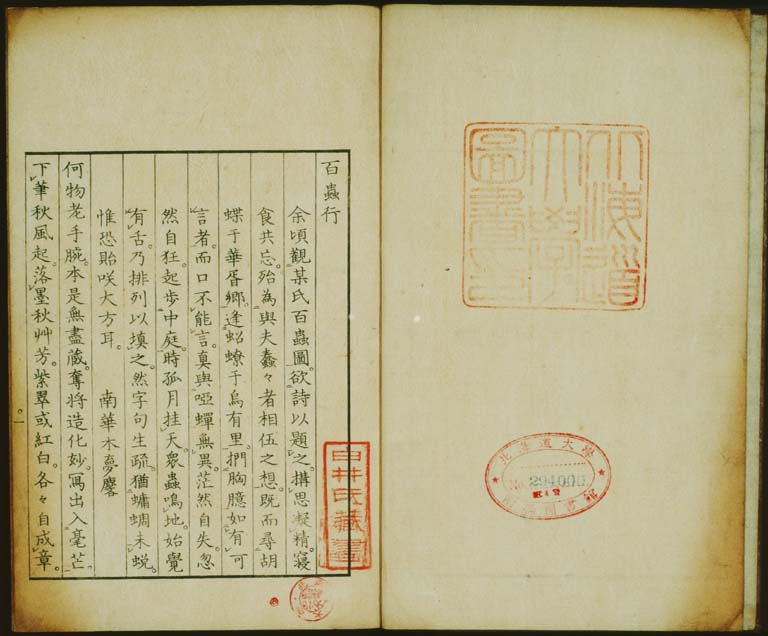 北海道
大學
圖書
北海道大學
No. 294006
圖書館
百蟲行
余頃觀某氏百蟲圖。欲詩以題之。搆思凝精。寢
食共忘。殆為與夫蠢々者相伍之想。既而尋胡
蝶于華胥鄉。逢蛁蟟于烏有里。捫胸臆如有可
言者。而口不能言。真與啞蟬無異。茫然自失。忽
然自狂。起步中庭。時孤月挂天。眾蟲鳴地。始覺
有舌。乃排列以填之。然字句生疏。猶蜩未蛻。
惟恐貽咲大方耳。 南華木夢麐
何物老手腕。本是無盡藏。奪將造化妙。寫出入毫芒。
下筆秋風起。落墨秋艸芳。紫翠或紅白。各々自成章。
白井氏藏書
一